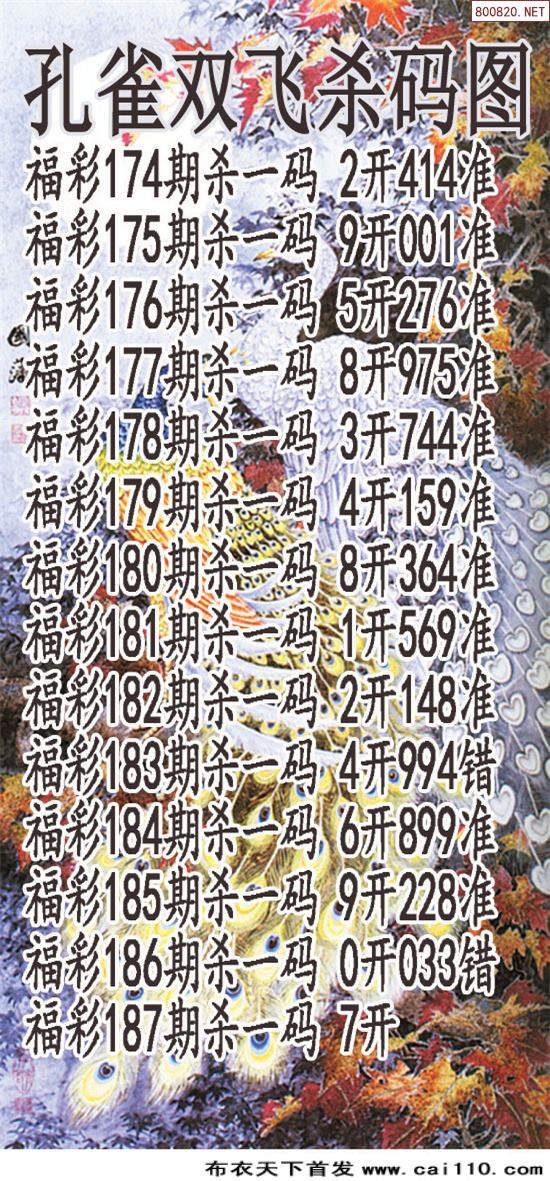 800820.NET
孔雀双飞杀码图
福彩174期杀一码 2开414准
福彩175期杀一码 9开001准
福彩176期杀一码 5开276准
福彩177期杀一码 8开975准
福彩178期杀一码 3开744准
福彩179期杀一码 4开159准
福彩180期杀一码 8开364准
福彩181期杀一码 1开569准
福彩182期杀一码 2开148准
福彩183期杀一码 4开994错
福彩184期杀一码 6开899准
福彩185期杀一码 9开228准
福彩186期杀一码 0开033错
福彩187期杀一码 7开
布衣天下首发 www.cai110.com